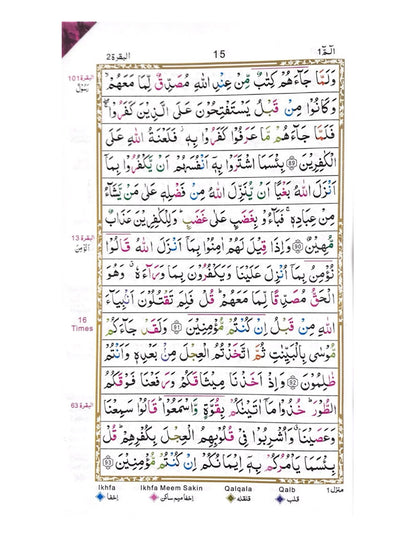 البقرة ٢ 15 الٓمّٓ ١
وَلَمَّا جَآءَهُمْ كِتٰبٌ مِّنْ عِنْدِ اللهِ مُصَدِّقٌ لِّمَا مَعَهُمْ ۙ
وَكَانُوْا مِنْ قَبْلُ يَسْتَفْتِحُوْنَ عَلَى الَّذِيْنَ كَفَرُوْا ۖ
فَلَمَّا جَآءَهُمْ مَّا عَرَفُوْا كَفَرُوْا بِهٖ ؗ فَلَعْنَةُ اللهِ عَلَى
الْكٰفِرِيْنَ ﴿٨٩﴾ بِئْسَمَا اشْتَرَوْا بِهٖٓ اَنْفُسَهُمْ اَنْ يَّكْفُرُوْا بِمَآ
اَنْزَلَ اللهُ بَغْيًا اَنْ يُّنَزِّلَ اللهُ مِنْ فَضْلِهٖ عَلٰى مَنْ يَّشَآءُ
مِنْ عِبَادِهٖ ۚ فَبَآءُوْ بِغَضَبٍ عَلٰى غَضَبٍ ؕ وَلِلْكٰفِرِيْنَ عَذَابٌ
مُّهِيْنٌ ﴿٩٠﴾ وَاِذَا قِيْلَ لَهُمْ اٰمِنُوْا بِمَآ اَنْزَلَ اللهُ قَالُوْا
نُؤْمِنُ بِمَآ اُنْزِلَ عَلَيْنَا وَيَكْفُرُوْنَ بِمَا وَرَآءَهٗ ۗ وَهُوَ
الْحَقُّ مُصَدِّقًا لِّمَا مَعَهُمْ ؕ قُلْ فَلِمَ تَقْتُلُوْنَ اَنْۢبِيَآءَ
اللهِ مِنْ قَبْلُ اِنْ كُنْتُمْ مُّؤْمِنِيْنَ ﴿٩١﴾ وَلَقَدْ جَآءَكُمْ
مُّوْسٰى بِالْبَيِّنٰتِ ثُمَّ اتَّخَذْتُمُ الْعِجْلَ مِنْۢ بَعْدِهٖ وَاَنْتُمْ
ظٰلِمُوْنَ ﴿٩٢﴾ وَاِذْ اَخَذْنَا مِيْثَاقَكُمْ وَرَفَعْنَا فَوْقَكُمُ
الطُّوْرَ ؕ خُذُوْا مَآ اٰتَيْنٰكُمْ بِقُوَّةٍ وَّاسْمَعُوْا ؕ قَالُوْا سَمِعْنَا
وَعَصَيْنَا ۗ وَاُشْرِبُوْا فِيْ قُلُوْبِهِمُ الْعِجْلَ بِكُفْرِهِمْ ؕ قُلْ
بِئْسَمَا يَاْمُرُكُمْ بِهٖٓ اِيْمَانُكُمْ اِنْ كُنْتُمْ مُّؤْمِنِيْنَ ﴿٩٣﴾
البقرة 101
رسول
البقرة 13
16
Times
البقرة 63
Ikhfa Ikhfa Meem Sakin Qalqala Qalb
اخفا اخفا میم ساکن قلقلہ قلب منزل ١